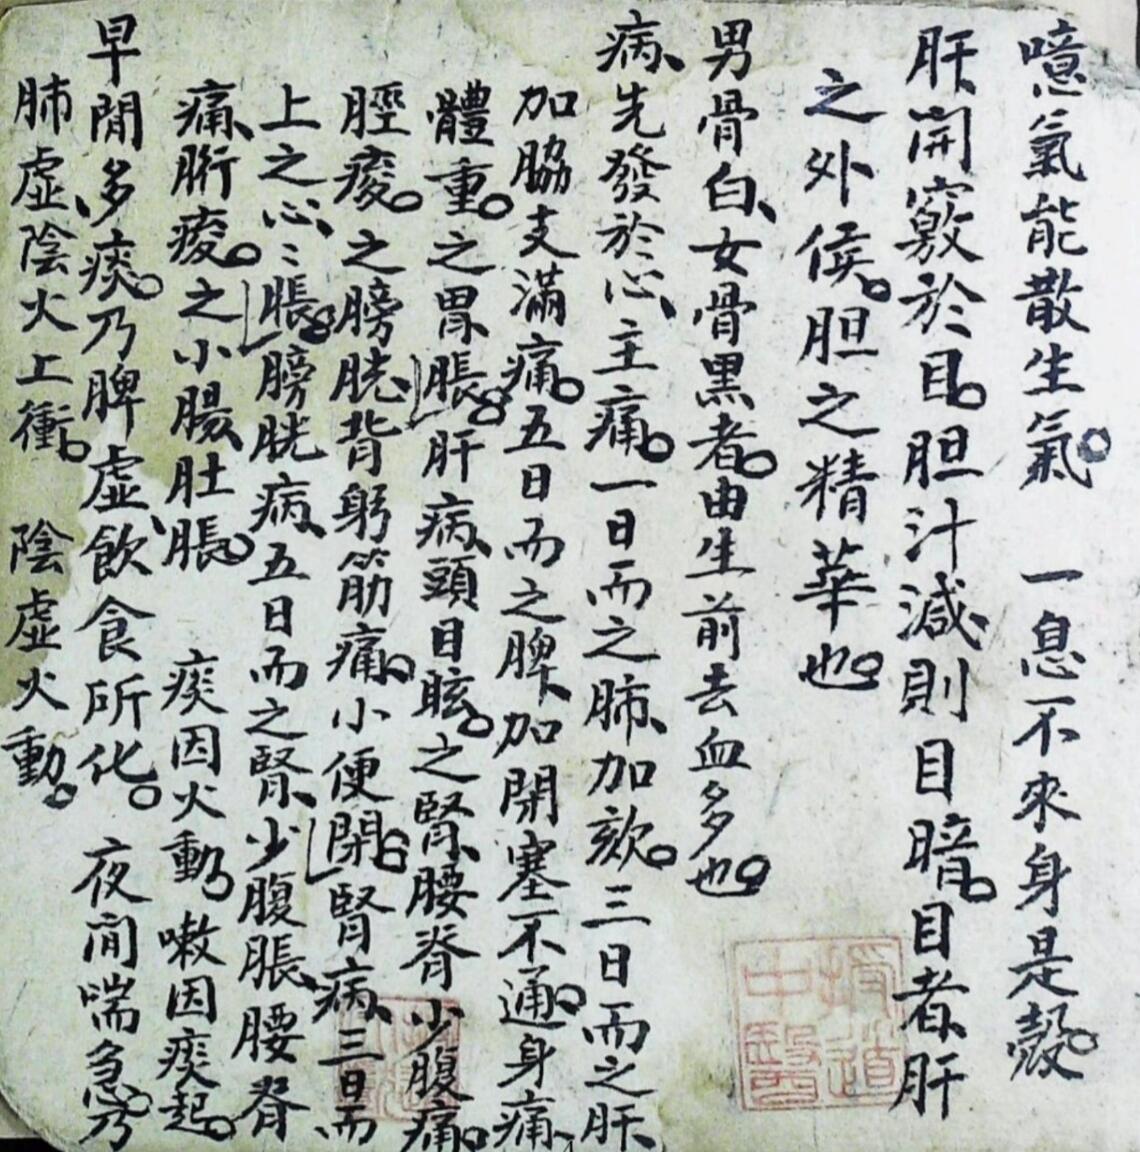 噫氣能散生氣。 一息不來身是殼。
肝、開竅於目。胆汁減、則目暗。目者、肝
之外候。胆之精華也。
男骨白、女骨黑者。由生前去血多也。
病、先發於心、主痛。一日而之肺、加欬。三日而之肝、
加脇支滿痛。五日而之脾、加閉塞不通。身痛、
體重。之胃脹。肝病、頭目眩。之腎、腰脊少腹痛。
脛痠。之膀胱、背䏚筋痛。小便閉。腎病、三日而
上之心、心脹。膀胱病、五日而之腎、少腹脹、腰脊
痛、胻痠。之小腸、肚脹。 痰因火動。嗽因痰起。
早間多痰。乃脾虛、飲食所化。 夜間喘急。乃
肺虛、陰火上衝。 陰虛火動。
授道
中醫